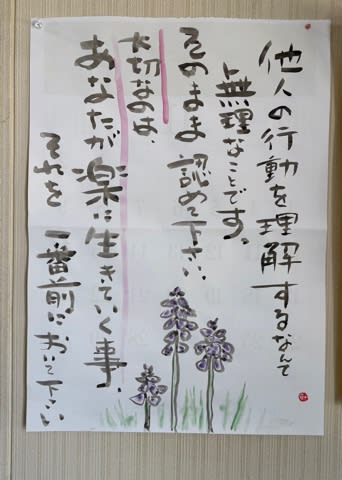 他人の行動を理解するなんて
無理なことです、
そのまま認めて下さい、
大切なのは、
あなたが楽に生きていく事、
それを一番前においで下さい